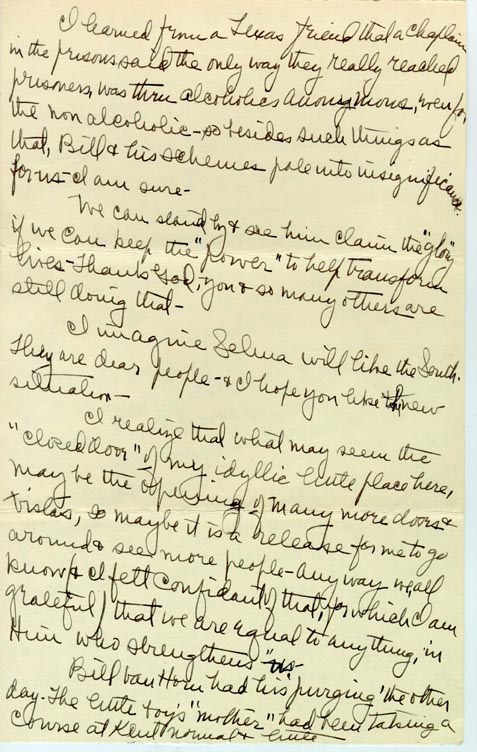 I learned from a Texas friend that a Chaplain
in the prisons said the only way they really reached
prisoners, was thru alcoholics anonymous, even for
the non alcoholic - so besides such things as
that, Bill & his schemes pale into insignificance
for us - I am sure -
We can stand by & see him claim the "glory"
if we can keep the "power" to help transform
lives - Thank God, you & so many others are
still doing that -
I imagine Selma will like the South.
They are dear people - & I hope you like the new
situation -
I realize that what may seem the
"closed door" of my idyllic little place here,
may be the opening of many more doors &
vistas, so maybe it is a release for me to go
around & see more people - Any way we all
know (& I felt confidant of that, for which I am
grateful) that we are equal to anything, in
Him who strengthens us -
Bill Van Horn had his 'purging' the other
day - The little toy's "mother" had been taking a
course at Kent normal & little